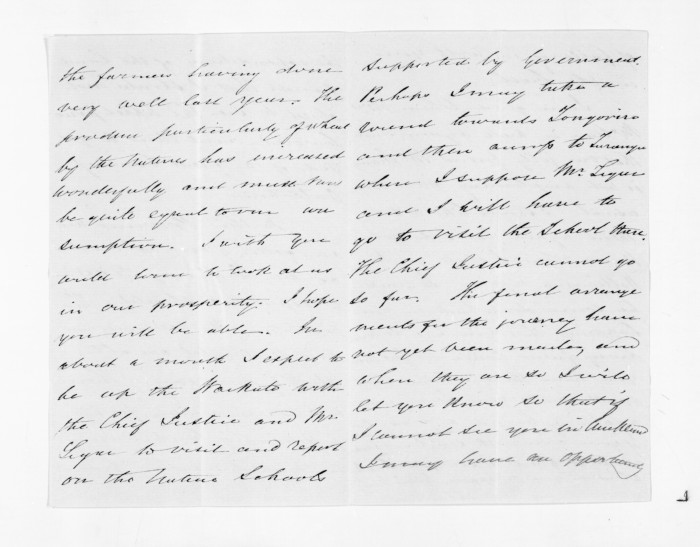 the farmers having done
very well last year. The
produce particularly of wheat
by the Natives has increased
wonderfully and must now
be quite equal to our con
sumption. I wish you
could come to look at us
in our prosperity. I hope
you will be able. In
about a month I expect to
be up the Waikato with
the Chief Justice and Mr.
Ligar to visit and report
on the Native Schools
supported by Government.
Perhaps I may take a
round towards Tongariro
and then across to Turanga
where I suppose Mr. Ligar
and I will have to
go to visit the School there.
The Chief Justice cannot go
so far. The final arrange
ments for the journey have
not yet been made, and
when they are so I will
let you know so that if
I cannot see you in Auckland
I may have an opportunity